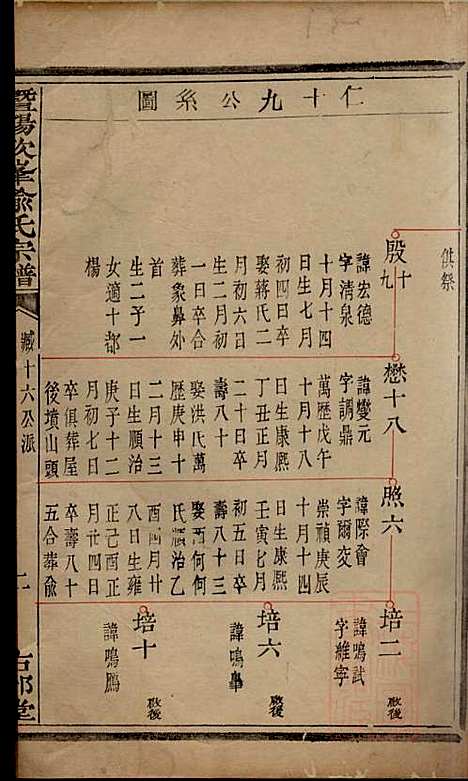 仁十九公系圖
供祭
殷十九
諱宏德
字清泉
十月十四
日生七月
初四日卒
娶蔣氏二
月初六日
生二月初
一日卒合
葬象鼻外
首
生二子一
女適十都
楊
懋十八
諱燮元
字調鼎
萬歷戊午
十月十八
日生康熙
丁丑正月
二十日卒
壽八十
娶洪氏萬
歷庚申十
二月十三
日生順治
庚子十二
月初七日
卒俱葬屋
後墳山頭
照六
諱際會
字爾交
崇禎庚辰
十月十四
日生康熙
壬寅七月
初五日卒
壽八十三
娶河何何
氏順治乙
酉四月廿
八日生雍
正己酉正
月廿四日
卒壽八十
五合葬俞
培二
諱鳴武
字維寧
啟後
培六
諱鳴
啟後
培十
諱鳴鳫
啟後
暨陽次峯俞氏宗譜
臧十六公派
二